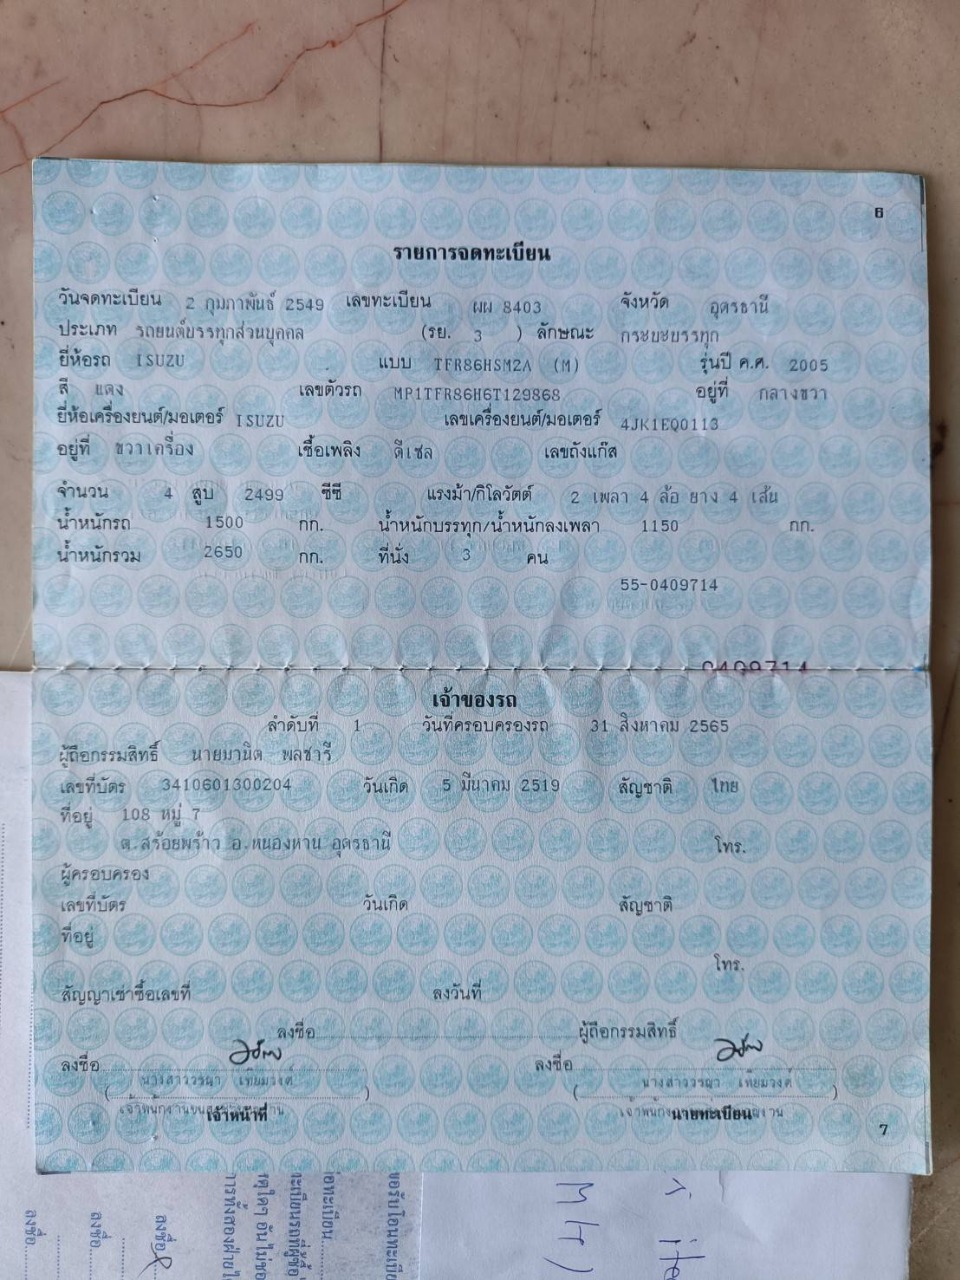 6
รายการจดทะเบียน
วันจดทะเบียน 2 กุมภาพันธ์ 2549 เลขทะเบียน ผผ 8403 จังหวัด อุดรธานี
ประเภท รถยนต์บรรทุกส่วนบุคคล (รย. 3 ) ลักษณะ กระบะบรรทุก
ยี่ห้อรถ ISUZU แบบ TFR86HSM2A (M) รุ่นปี ค.ศ. 2005
สี แดง เลขตัวรถ MP1TFR86H6T129868 อยู่ที่ กลางขวา
ยี่ห้อเครื่องยนต์/มอเตอร์ ISUZU เลขเครื่องยนต์/มอเตอร์ 4JK1EQ0113
อยู่ที่ ขวาเครื่อง เชื้อเพลิง ดีเซล เลขถังแก๊ส
จำนวน 4 สูบ 2499 ซีซี แรงม้า/กิโลวัตต์ 2 เพลา 4 ล้อ ยาง 4 เส้น
น้ำหนักรถ 1500 กก. น้ำหนักบรรทุก/น้ำหนักลงเพลา 1150 กก.
น้ำหนักรวม 2650 กก. ที่นั่ง 3 คน
55-0409714
0409714
เจ้าของรถ
ลำดับที่ 1 วันที่ครอบครองรถ 31 สิงหาคม 2565
ผู้ถือกรรมสิทธิ์ นายมานิต พลชารี
เลขที่บัตร 3410601300204 วันเกิด 5 มีนาคม 2519 สัญชาติ ไทย
ที่อยู่ 108 หมู่ 7
ต.สร้อยพร้าว อ.หนองหาน อุดรธานี โทร.
ผู้ครอบครอง
เลขที่บัตร วันเกิด สัญชาติ
ที่อยู่
โทร.
สัญญาเช่าซื้อเลขที่ ลงวันที่
ลงชื่อ ผู้ถือกรรมสิทธิ์
ลงชื่อ ลงชื่อ
( นางสาววรญา เทียมวงศ์ ) ( นางสาววรญา เทียมวงศ์ )
เจ้าหน้าที่ นายทะเบียน
7
ลงชื่อ
ลงชื่อ
ลงชื่อ